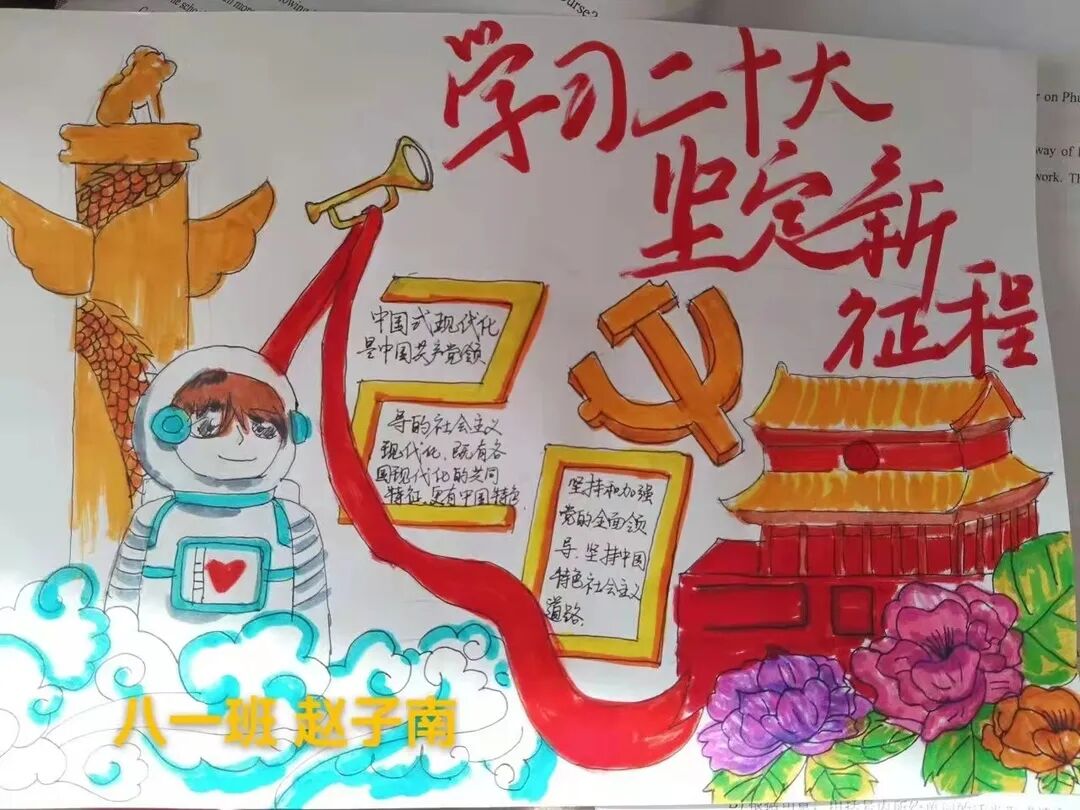 学习二十大
坚定新
征程
中国式现代化
是中国共产党领
导的社会主义
现代化,既有各
国现代化的共同
特征,更有中国特色
坚持和加强
党的全面领
导、坚持中国
特色社会主义
道路.
八一班 赵子南
r on Phu
way of
work. Th